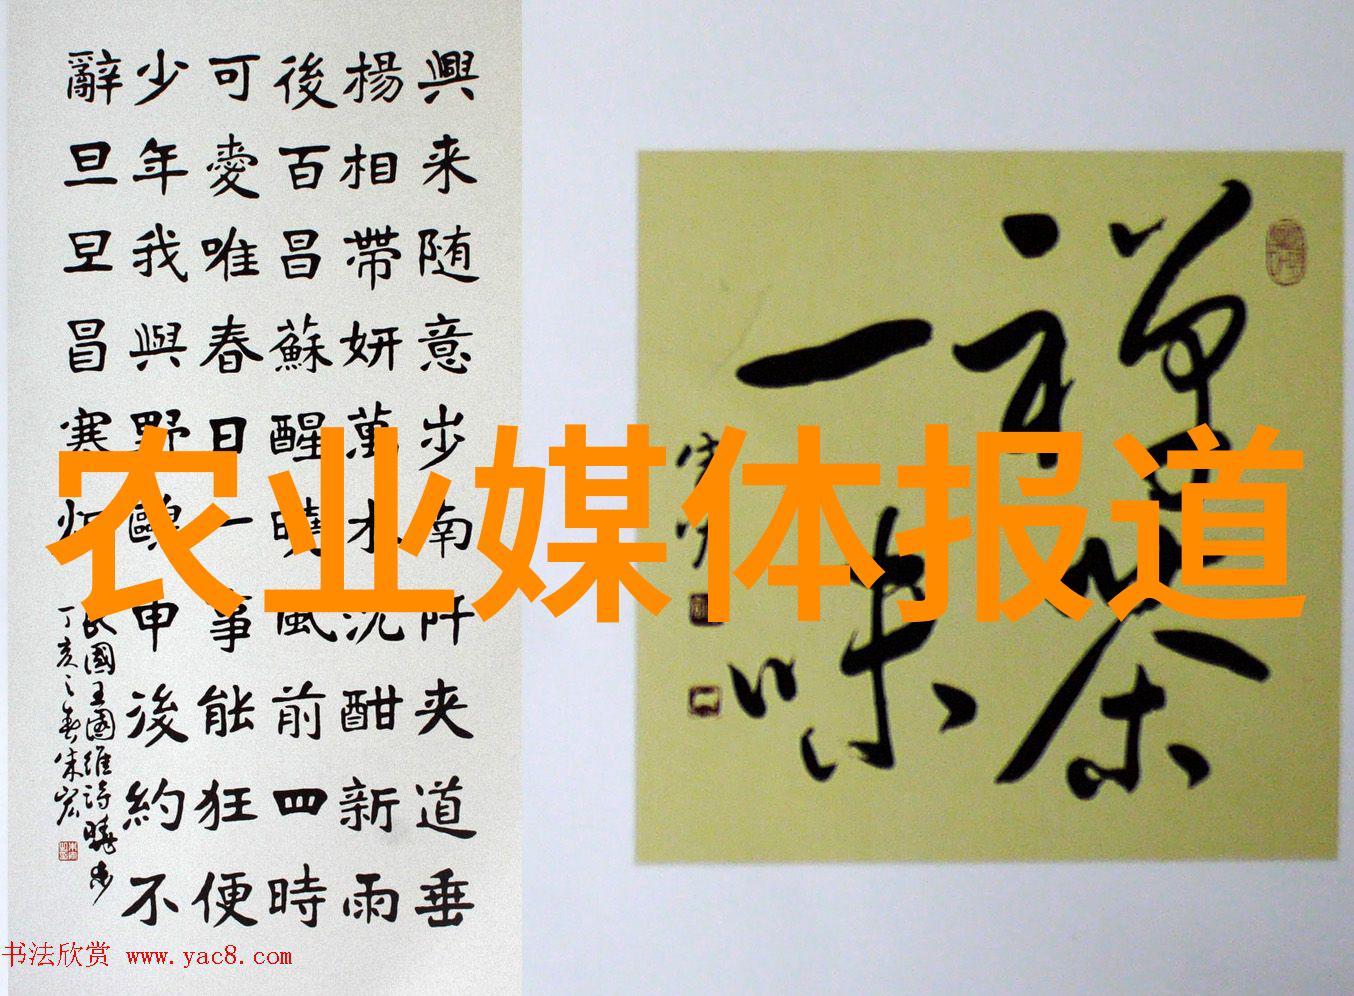 興来随意步南阡夹道垂
楊相帶妍萬木沈酣新雨
後百昌蘇醒曉風前四時
可愛唯春日一事能狂便
少年我與野鷗申後約不
辭旦旦冒寒烟
民國王國維詩曉步
丁亥之春朱宏
禪茶
一味
农业媒体报道
书法欣赏 www.yac8.com